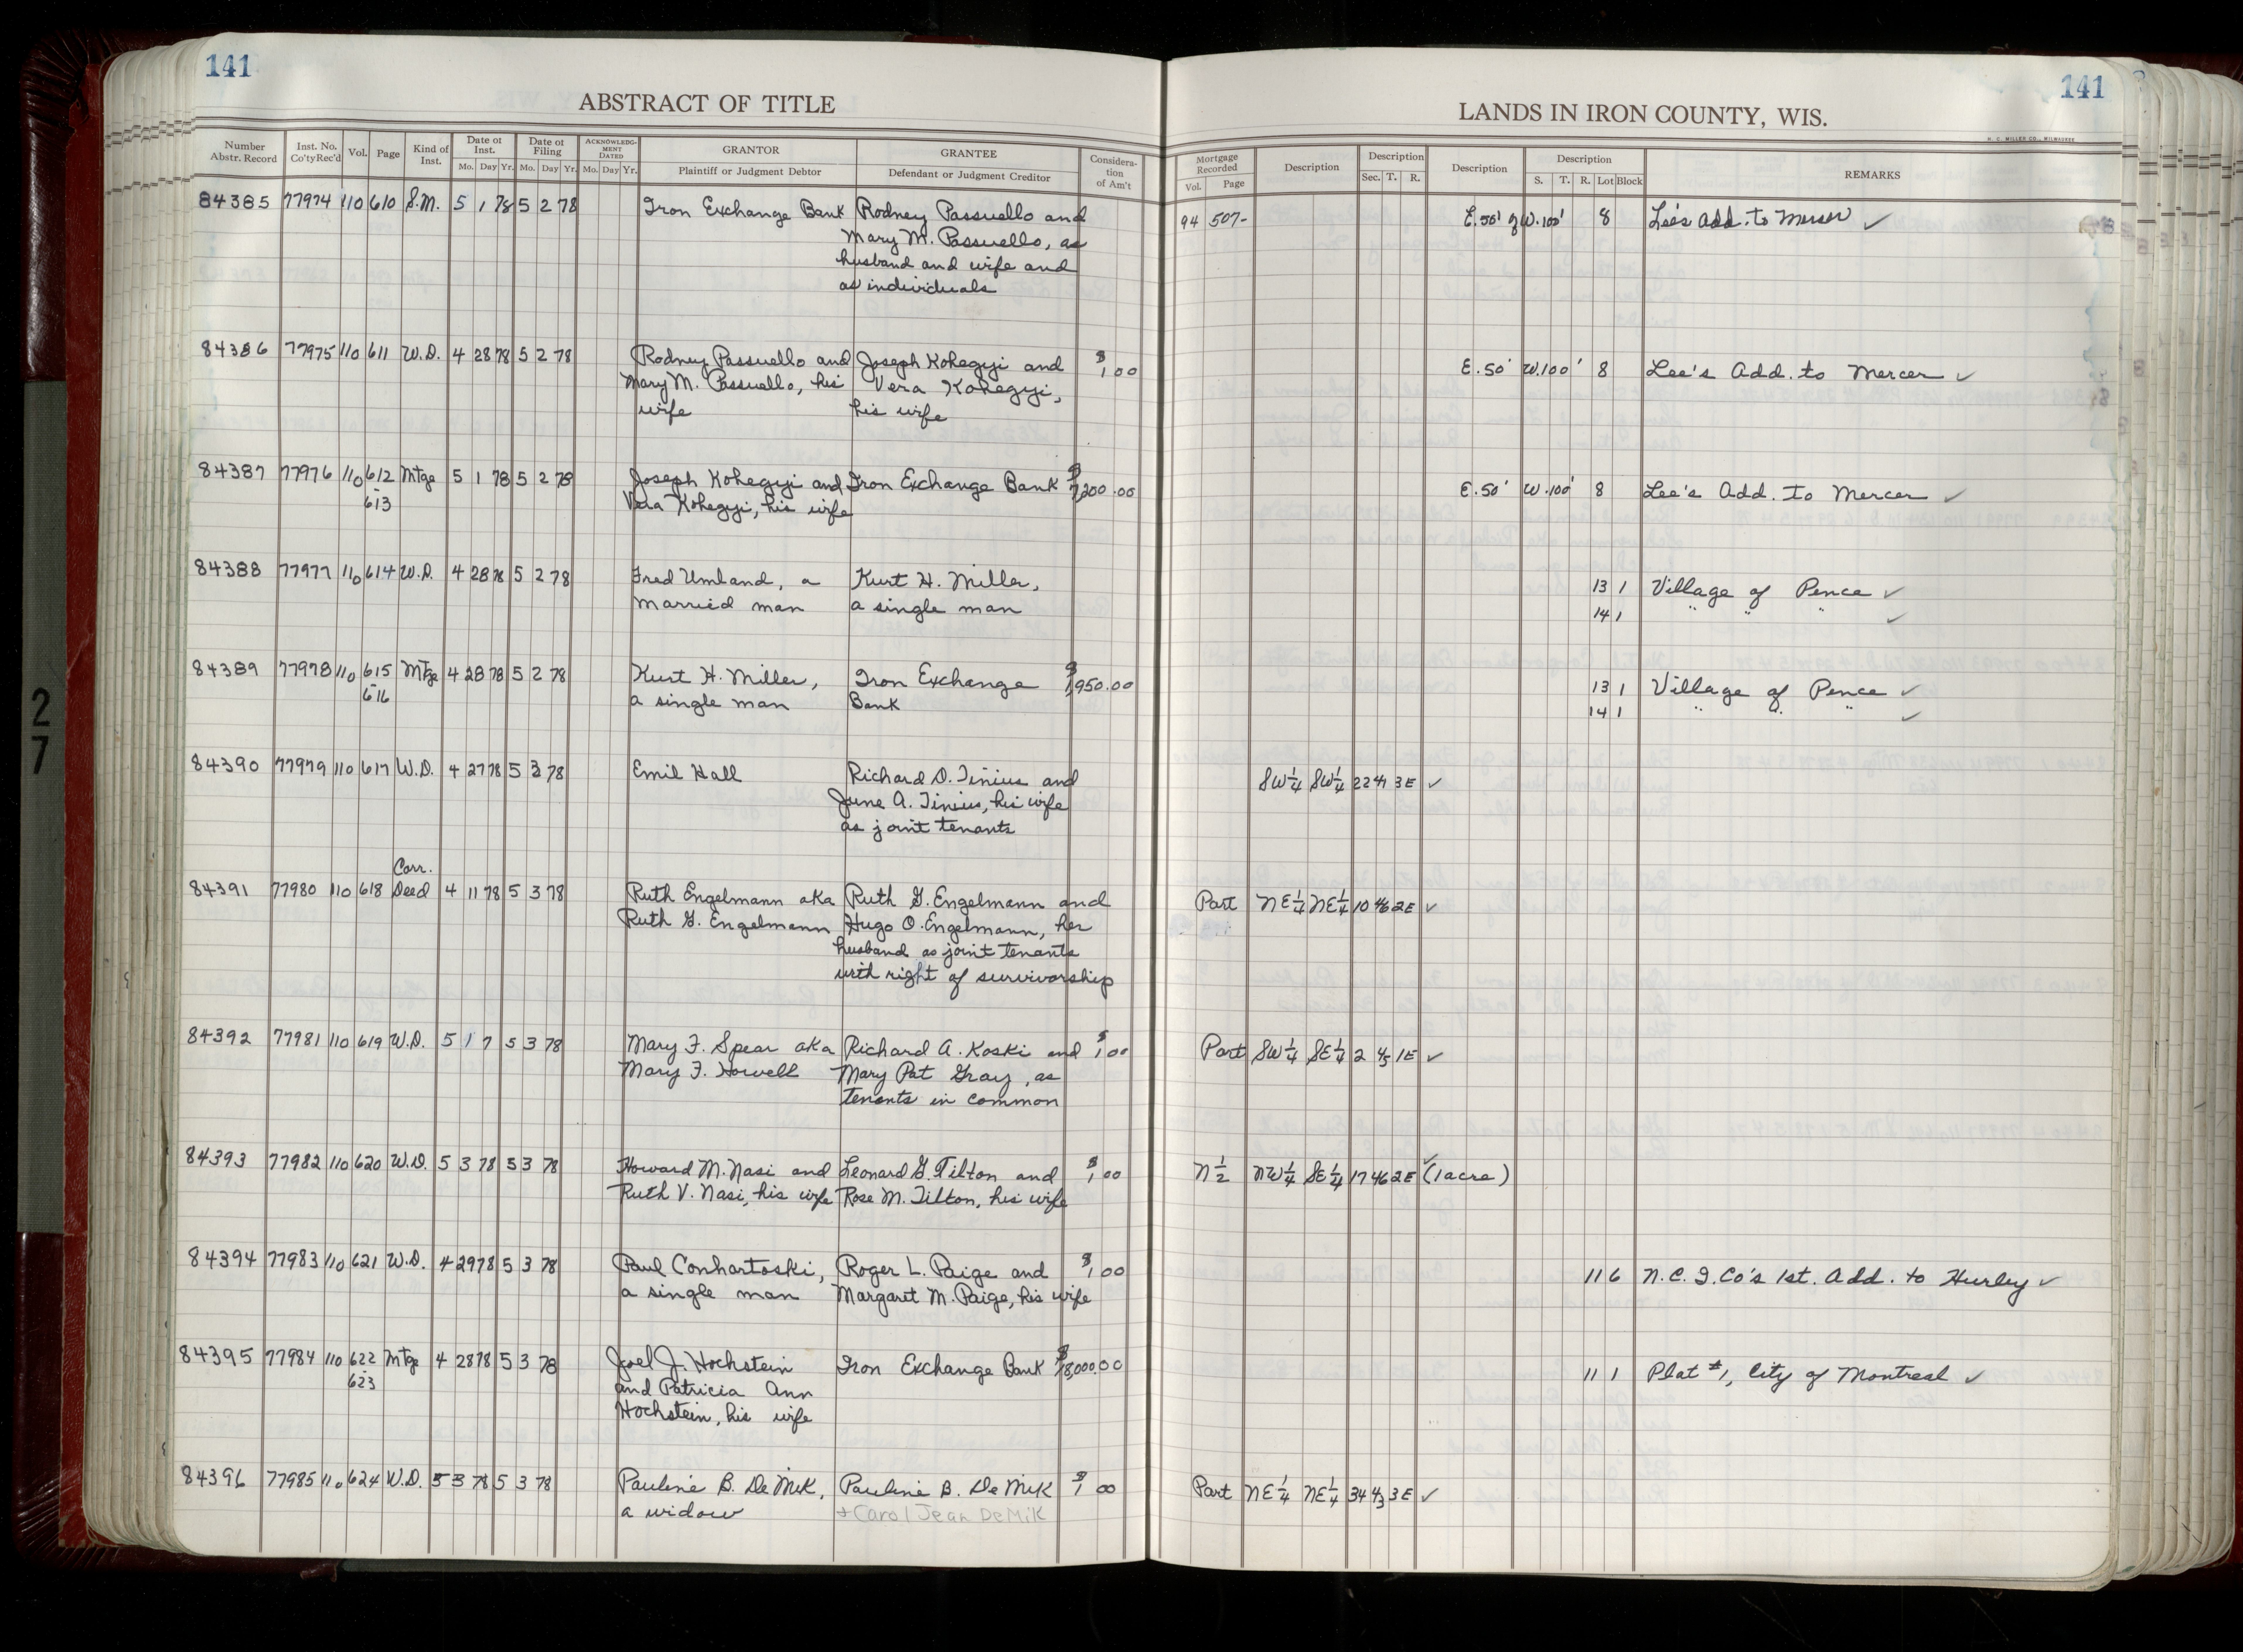 141
141
ABSTRACT OF TITLE
LANDS IN IRON COUNTY, WIS.
H. C. MILLER CO., MILWAUKEE
Number Abstr. Record | Inst. No. Co'ty Rec'd | Vol. | Page | Kind of Inst. | Date of Inst. Mo. Day Yr. | Date of Filing Mo. Day Yr. | ACKNOWLEDGMENT DATED Mo. Day Yr. | GRANTOR Plaintiff or Judgment Debtor | GRANTEE Defendant or Judgment Creditor | Consideration of Am't | Mortgage Recorded Vol. Page | Description | Description Sec. T. R. | Description | Description S. T. R. Lot Block | REMARKS
84385 77974 110 610 S.M. 5 1 78 5 2 78 Iron Exchange Bank Rodney Passuello and 94 507- E.50' of W.100' 8 Lee's Add. to Mercer ✓
Mary M. Passuello, as
husband and wife and
as individuals
84386 77975 110 611 W.D. 4 28 78 5 2 78 Rodney Passuello and Joseph Kohegyi and $1.00 E.50' W.100' 8 Lee's Add. to Mercer ✓
Mary M. Passuello, his Vera Kohegyi,
wife his wife
84387 77976 110 612 Mtge 5 1 78 5 2 78 Joseph Kohegyi and Iron Exchange Bank $7,200.00 E.50' W.100' 8 Lee's Add. to Mercer ✓
-613 Vera Kohegyi, his wife
84388 77977 110 614 W.D. 4 28 78 5 2 78 Fred Umland, a Kurt H. Miller, 13 1 Village of Pence ✓
married man a single man 14 1 " " " ✓
84389 77978 110 615 Mtge 4 28 78 5 2 78 Kurt H. Miller, Iron Exchange 950.00 13 1 Village of Pence ✓
-616 a single man Bank 14 1 " " " ✓
84390 77979 110 617 W.D. 4 27 78 5 3 78 Emil Hall Richard D. Tinius and SW¼ SW¼ 22 41 3E ✓
June A. Tinius, his wife
as joint tenants
Corr.
84391 77980 110 618 Deed 4 11 78 5 3 78 Ruth Engelmann aka Ruth G. Engelmann and Part NE¼ NE¼ 10 46 2E ✓
Ruth G. Engelmann Hugo O. Engelmann, her
husband as joint tenants
with right of survivorship
84392 77981 110 619 W.D. 5 1 7 5 3 78 Mary F. Spear aka Richard A. Koski and $1.00 Part SW¼ SE¼ 2 45 1E ✓
Mary F. Howell Mary Pat Gray, as
tenants in common
84393 77982 110 620 W.D. 5 3 78 5 3 78 Howard M. Nasi and Leonard G. Tilton and $1.00 N½ NW¼ SE¼ 17 46 2E ✓ (1 acre)
Ruth V. Nasi, his wife Rose M. Tilton, his wife
84394 77983 110 621 W.D. 4 29 78 5 3 78 Paul Conhartoski, Roger L. Paige and $1.00 11 6 N.C.I. Co's 1st. Add. to Hurley ✓
a single man Margaret M. Paige, his wife
84395 77984 110 622 Mtge 4 28 78 5 3 78 Joel J. Hochstein Iron Exchange Bank $18,000.00 11 1 Plat #1, City of Montreal ✓
-623 and Patricia Ann
Hochstein, his wife
84396 77985 110 624 W.D. 5 3 78 5 3 78 Pauline B. DeMik, Pauline B. DeMik $1 00 Part NE¼ NE¼ 34 43 3E ✓
a widow + Carol Jean DeMik
27